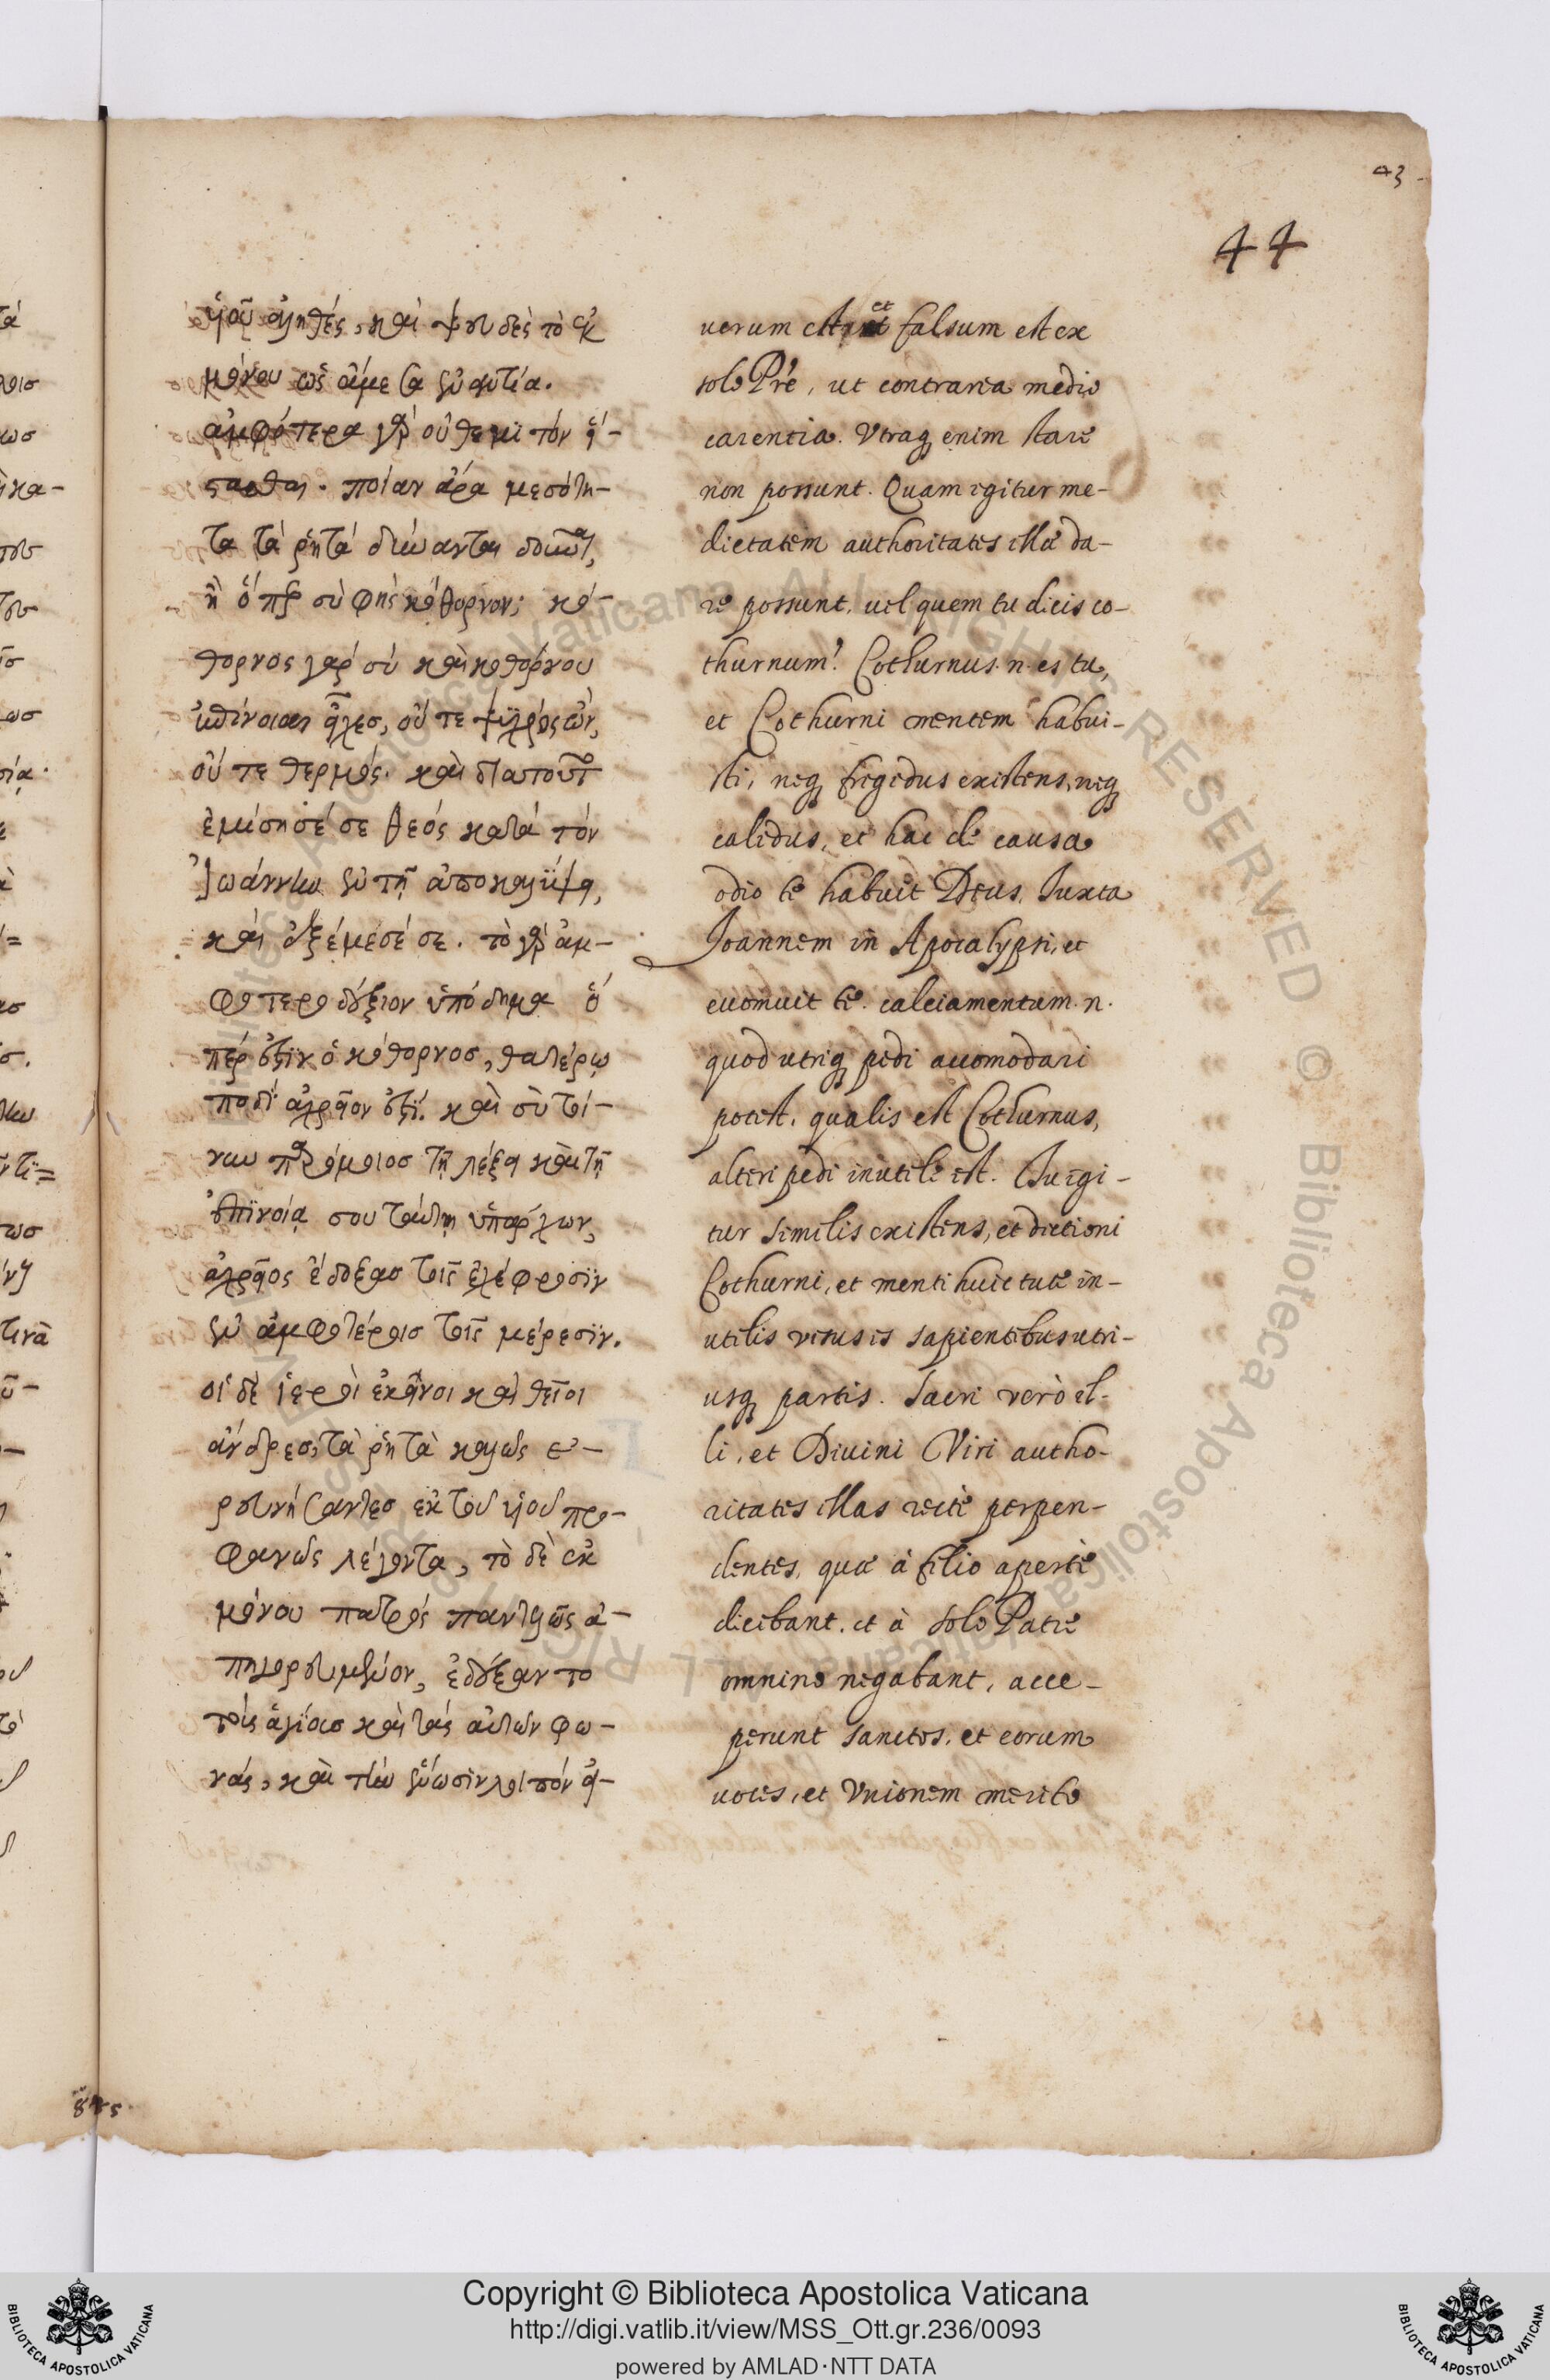 43
44
υἱοῦ ἀληθές, καὶ ψευδὲς τὸ ἐκ
μόνου ὡς ἄμεσα ἐναντία.
ἀμφότερα γὰρ οὐ θεμιτὸν ἵ-
στασθαι. ποίαν ἄρα μεσότη-
τα τὰ ῥητὰ δύνανται δοῦναι,
ἢ ὅπερ σὺ φῂς κόθορνον; κό-
θορνος γὰρ σὺ καὶ κοθόρνου
ἐπίνοιαν εἶχες, οὔτε ψυχρὸς ὢν,
οὔτε θερμός. καὶ διατοῦτο
ἐμίσησέ σε θεὸς κατὰ τὸν
Ἰωάννην ἐν τῇ ἀποκαλύψει,
καὶ ἐξέμεσέ σε. τὸ γὰρ ἀμ-
φοτεροδέξιον ὑπόδημα ὅ
πέρ ἐστιν ὁ κόθορνος, θατέρῳ
ποδὶ ἀχρεῖον ἐστί. καὶ σὺ τοί-
νυν παρόμοιος τῇ λέξει καὶ τῇ
ἐπινοίᾳ σου ταύτῃ ὑπάρχων,
ἀχρεῖος ἔδοξας τοῖς ἐχέφροσιν
ἐν ἀμφοτέροις τοῖς μέρεσιν.
οἱ δὲ ἱεροὶ ἐκεῖνοι καὶ θεῖοι
ἄνδρες, τὰ ῥητὰ καλῶς ἐ-
ρευνήσαντες ἐκ τοῦ υἱοῦ προ-
φανῶς λέγοντα, τὸ δὲ ἐκ
μόνου πατρὸς παντελῶς ἀ-
πηγορευμένον, ἐδέξαντο
τοὺς ἁγίους καὶ τὰς αὐτῶν φω-
νάς, καὶ τὴν ἕνωσιν λοιπὸν εἰ-
uerum est, et falsum est ex
solo Pre, ut contraria medio
carentia. Vtraq enim stare
non possunt. Quam igitur me-
dietatem authoritates illæ da-
re possunt, uel quem tu dicis co-
thurnum? Cothurnus n. es tu,
et Cothurni mentem habui-
sti, neq frigidus existens, neq
calidus, et hac de causa
odio te habuit Deus, Iuxta
Ioannem in Apocalypsi, et
euomuit te. calciamentum n.
quod utriq pedi accomodari
potest, qualis est Cothurnus,
alteri pedi inutile est. Tu igi-
tur similis existens, et dictioni
Cothurni, et menti huic tuæ in-
utilis visus is sapientibus utri-
usq partis. Sacri verò il-
li, et Diuini Viri autho-
ritates illas rectè perpen-
dentes, quæ à filio apertè
dicebant, et à solo Patre
omnino negabant, acce-
perunt sanctos, et eorum
uoces, et Vnionem merito
Copyright © Biblioteca Apostolica Vaticana
http://digi.vatlib.it/view/MSS_Ott.gr.236/0093
powered by AMLAD·NTT DATA